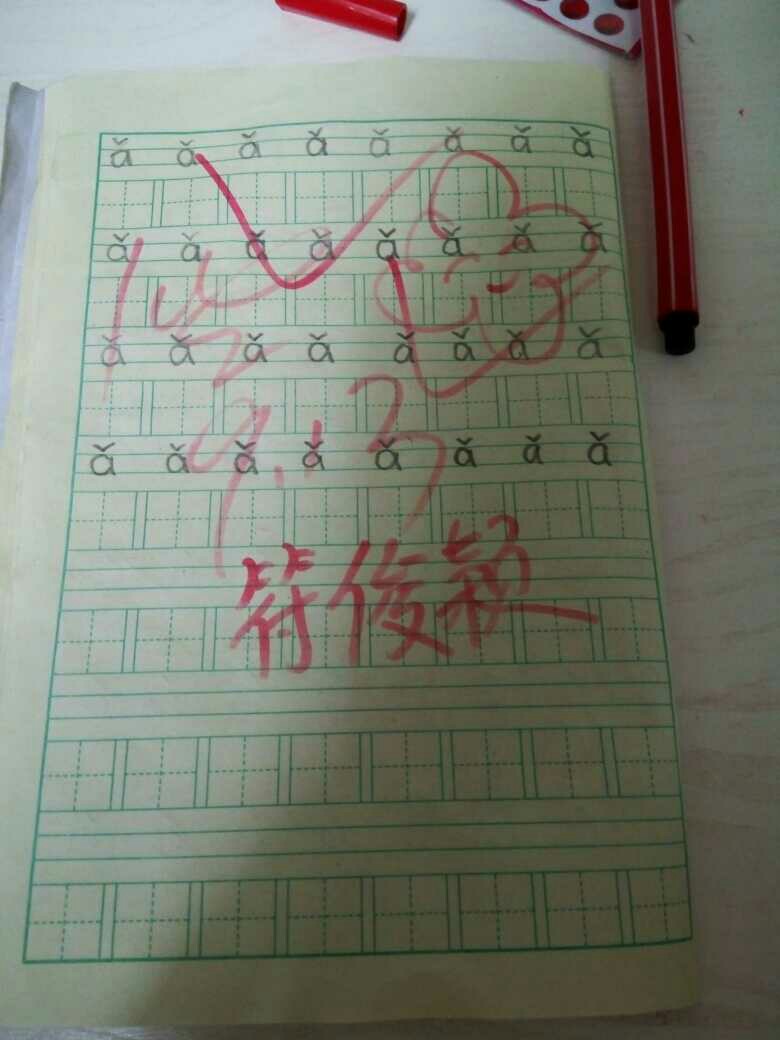 ǎ ǎ ǎ ǎ ǎ ǎ ǎ ǎ
ǎ ǎ ǎ ǎ ǎ ǎ ǎ ǎ
ǎ ǎ ǎ ǎ ǎ ǎ ǎ ǎ
ǎ ǎ ǎ ǎ ǎ ǎ ǎ ǎ
9.13
符俊颖